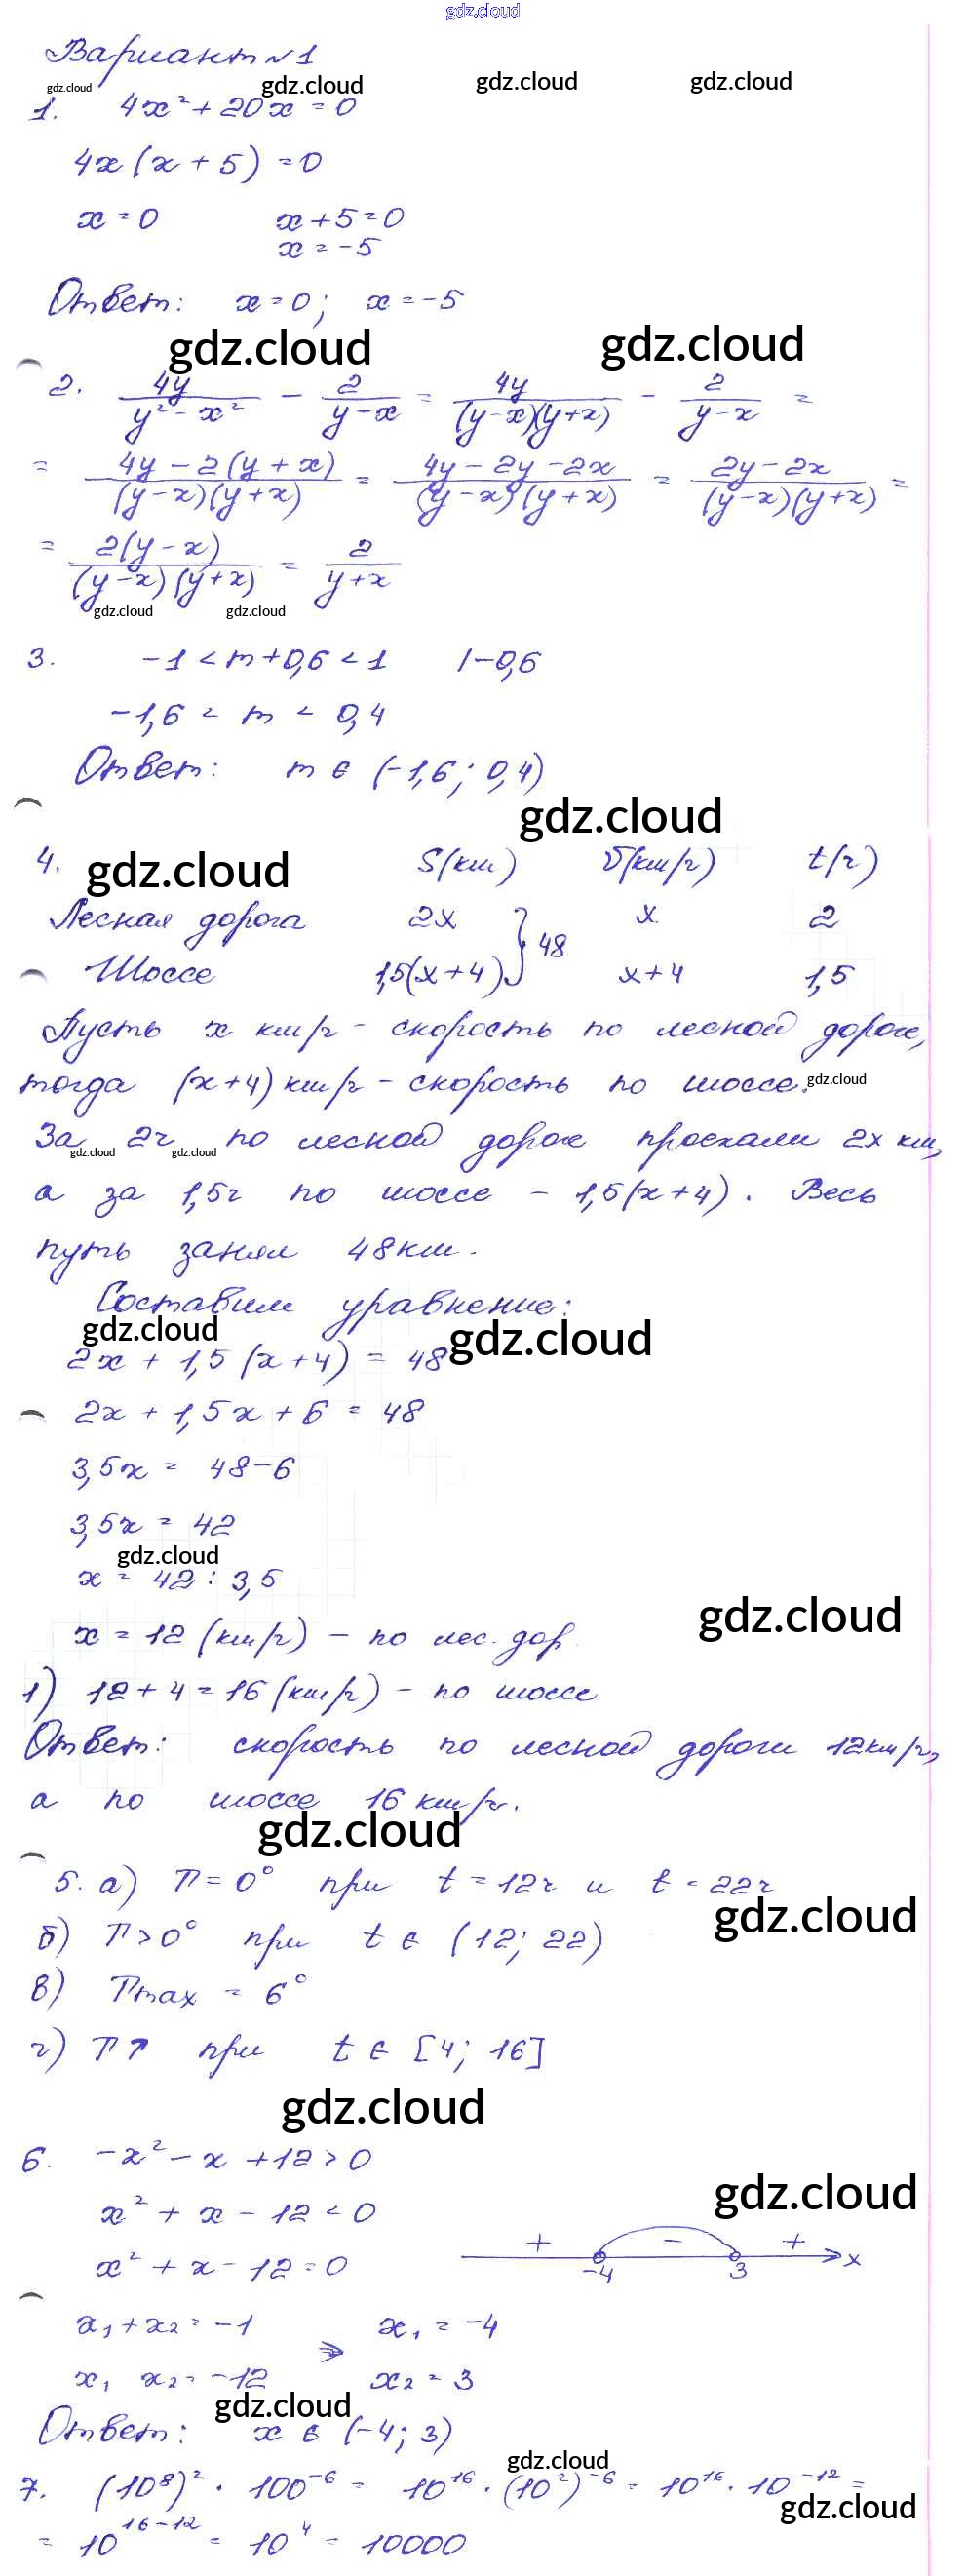 gdz.cloud
Вариант №1
gdz.cloud gdz.cloud gdz.cloud gdz.cloud
1. 4x² + 20x = 0
4x(x + 5) = 0
x = 0 x + 5 = 0
x = -5
Ответ: x = 0; x = -5
gdz.cloud gdz.cloud
2. 4y/(y² - x²) - 2/(y - x) = 4y/((y - x)(y + x)) - 2/(y - x) =
= (4y - 2(y + x))/((y - x)(y + x)) = (4y - 2y - 2x)/((y - x)(y + x)) = (2y - 2x)/((y - x)(y + x)) =
= 2(y - x)/((y - x)(y + x)) = 2/(y + x)
gdz.cloud gdz.cloud
3. -1 < m + 0,6 < 1 | -0,6
-1,6 < m < 0,4
Ответ: m ∈ (-1,6; 0,4)
gdz.cloud
4. gdz.cloud S(км) V(км/ч) t(ч)
Лесная дорога 2x x 2
} 48
Шоссе 1,5(x+4) x+4 1,5
Пусть x км/ч - скорость по лесной дороге,
тогда (x+4) км/ч - скорость по шоссе. gdz.cloud
За 2ч по лесной дороге проехали 2x км,
gdz.cloud gdz.cloud
а за 1,5ч по шоссе - 1,5(x+4). Весь
путь занял 48км.
Составим уравнение:
gdz.cloud gdz.cloud
2x + 1,5(x+4) = 48
2x + 1,5x + 6 = 48
3,5x = 48 - 6
3,5x = 42
gdz.cloud
x = 42 : 3,5
gdz.cloud
x = 12 (км/ч) - по лес. дор.
1) 12 + 4 = 16 (км/ч) - по шоссе
Ответ: скорость по лесной дороги 12км/ч,
а по шоссе 16 км/ч.
gdz.cloud
5. а) T = 0° при t = 12ч и t = 22ч
gdz.cloud
б) T > 0° при t ∈ (12; 22)
в) Tmax = 6°
г) T↗ при t ∈ [4; 16]
gdz.cloud
6. -x² - x + 12 > 0
gdz.cloud
x² + x - 12 < 0
+ - +
x² + x - 12 = 0
-4 3 x
x₁ + x₂ = -1 x₁ = -4
⇒
x₁ x₂ = -12 x₂ = 3
gdz.cloud
Ответ: x ∈ (-4; 3)
gdz.cloud
7. (10⁸)² · 100⁻⁶ = 10¹⁶ · (10²)⁻⁶ = 10¹⁶ · 10⁻¹² =
gdz.cloud
= 10¹⁶⁻¹² = 10⁴ = 10000